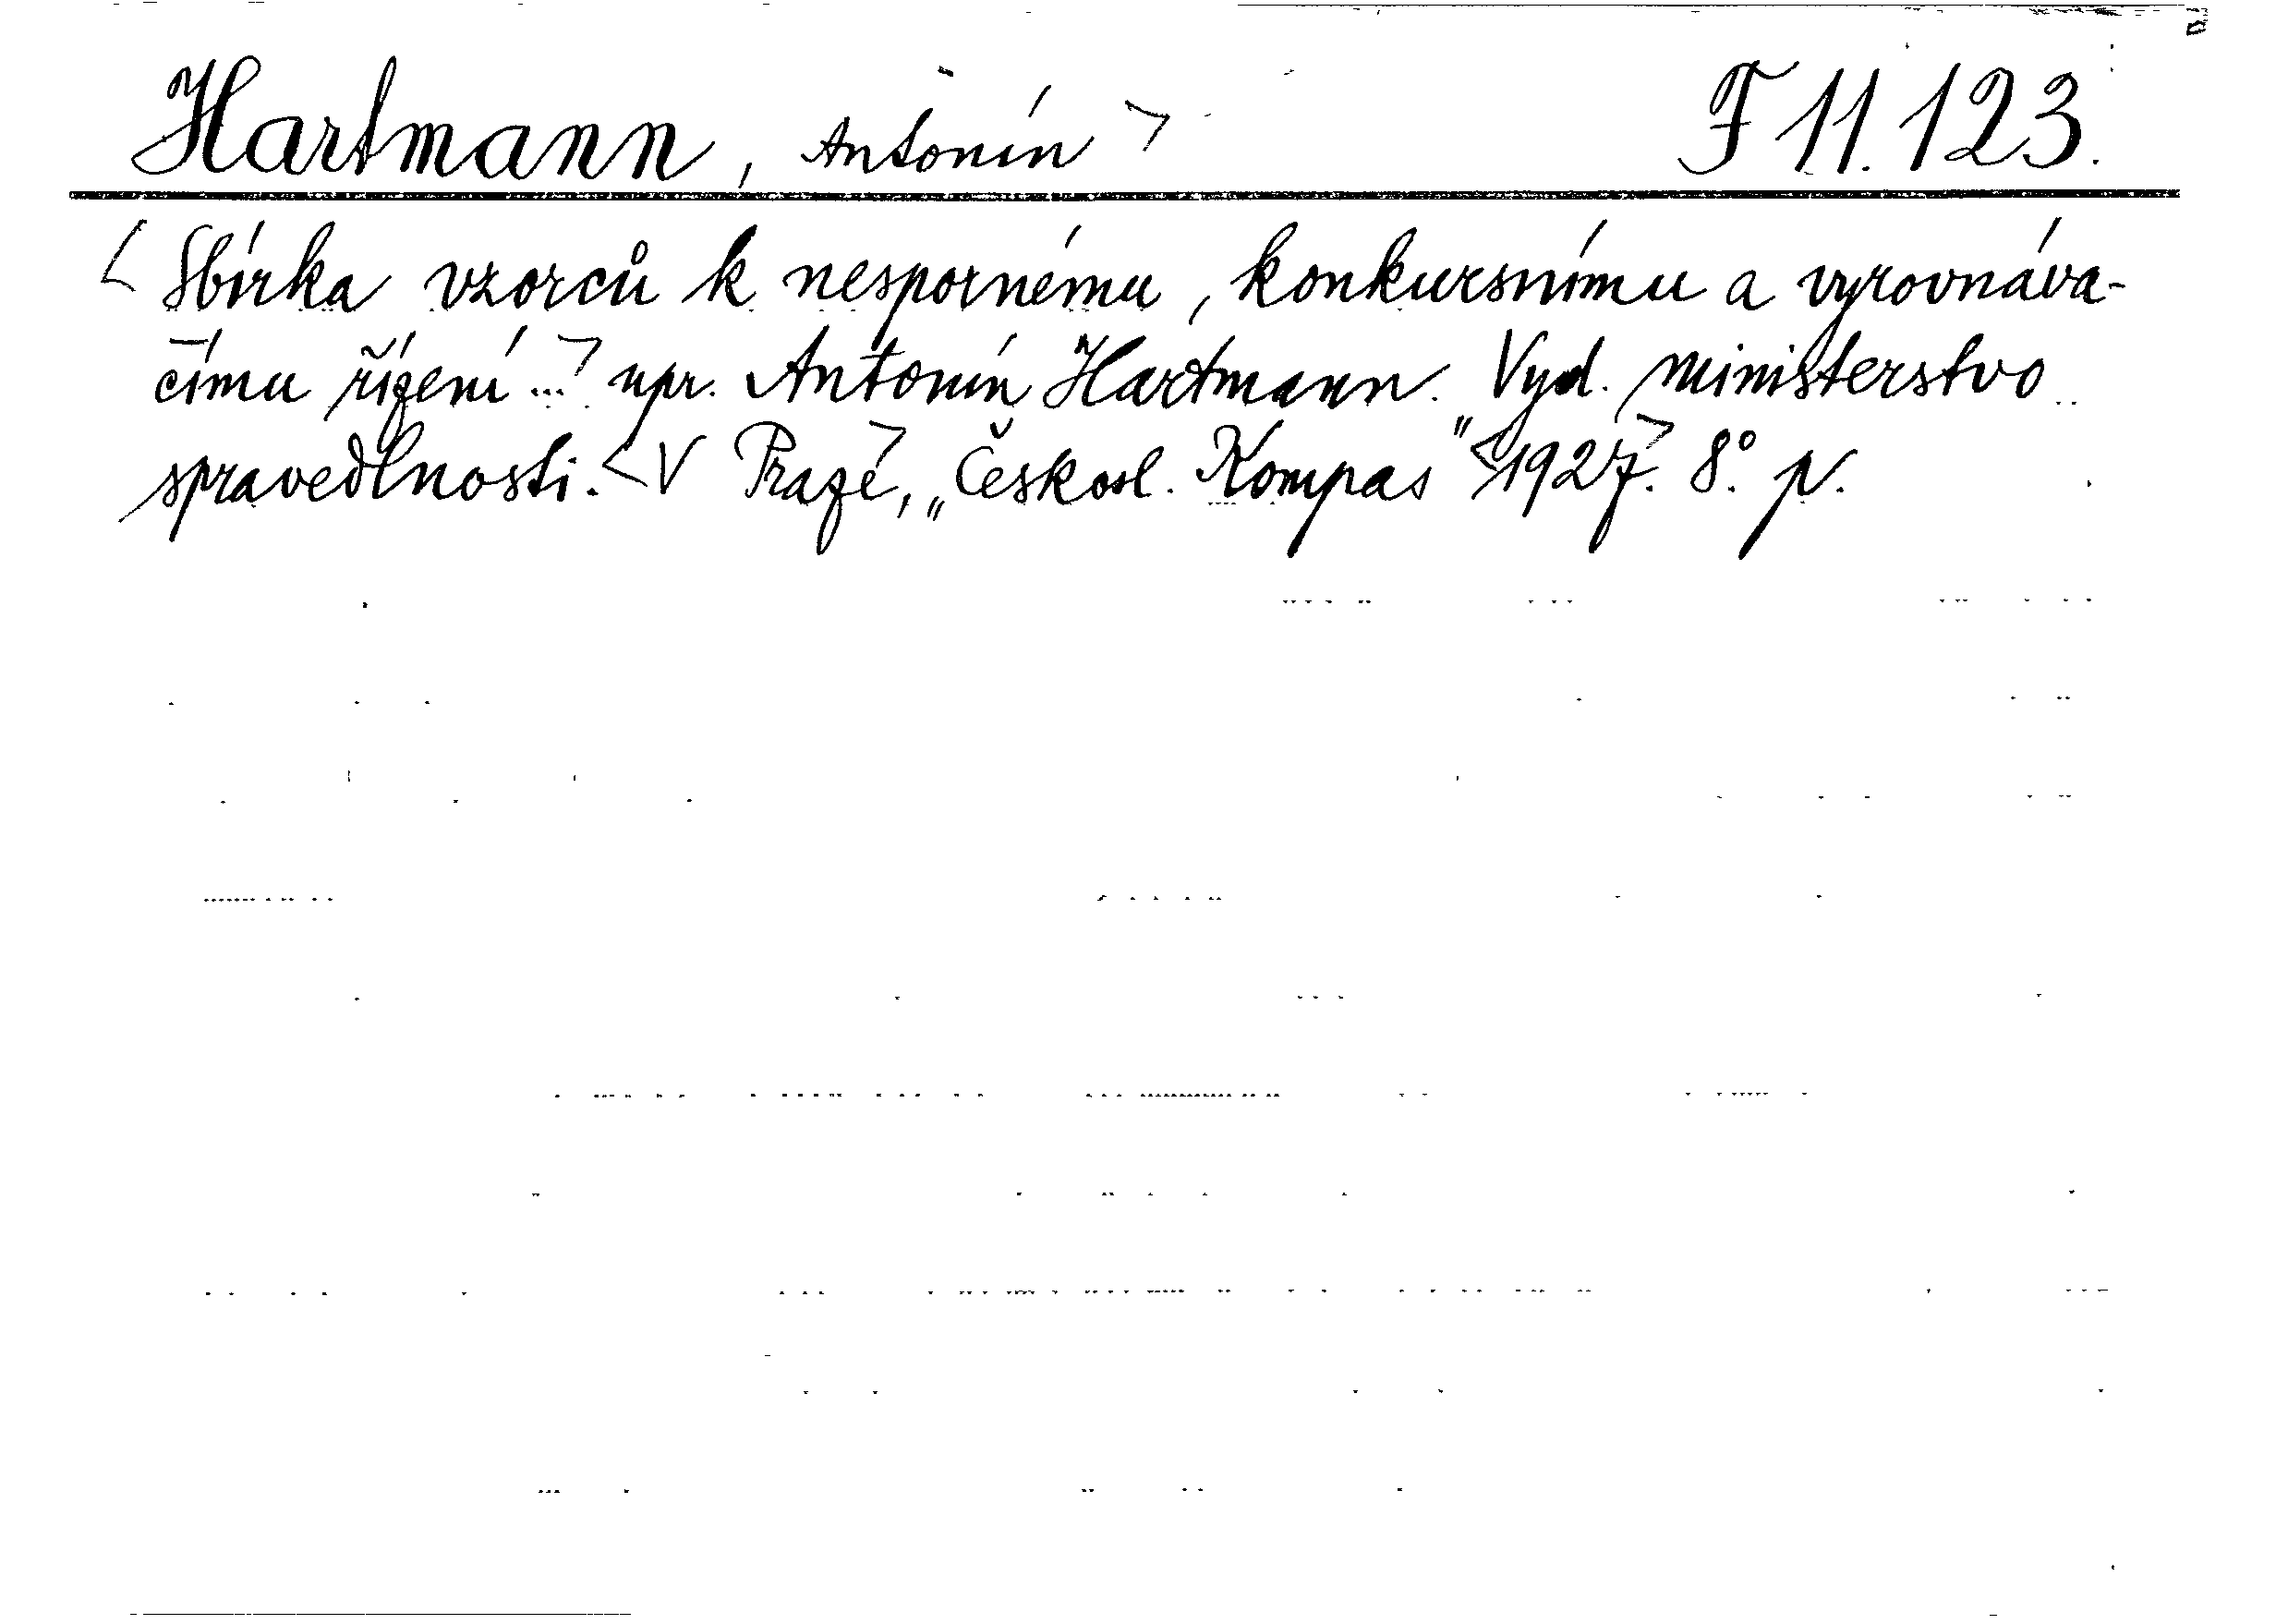 Hartmann, Antonín > F 11.123.
< Sbírka vzorců k nespornému, konkursnímu a vyrovnáva-
címu řízení ...> upr. Antonín Hartmann. Vyd. ministerstvo
spravedlnosti. < V Praze, „Českosl. Kompas" <1927>. 8°. p.